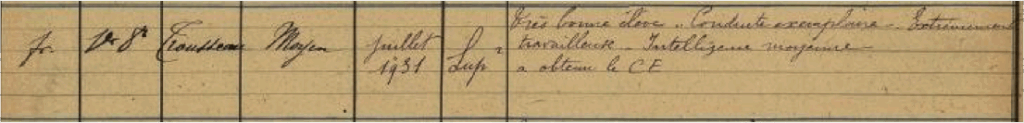 Très bonne élève. Conduite exemplaire. Extrêmement
fr. 1er 8r Trousseau Moyen juillet S travailleuse. Intelligence moyenne
1931 Sup
a obtenu le CE